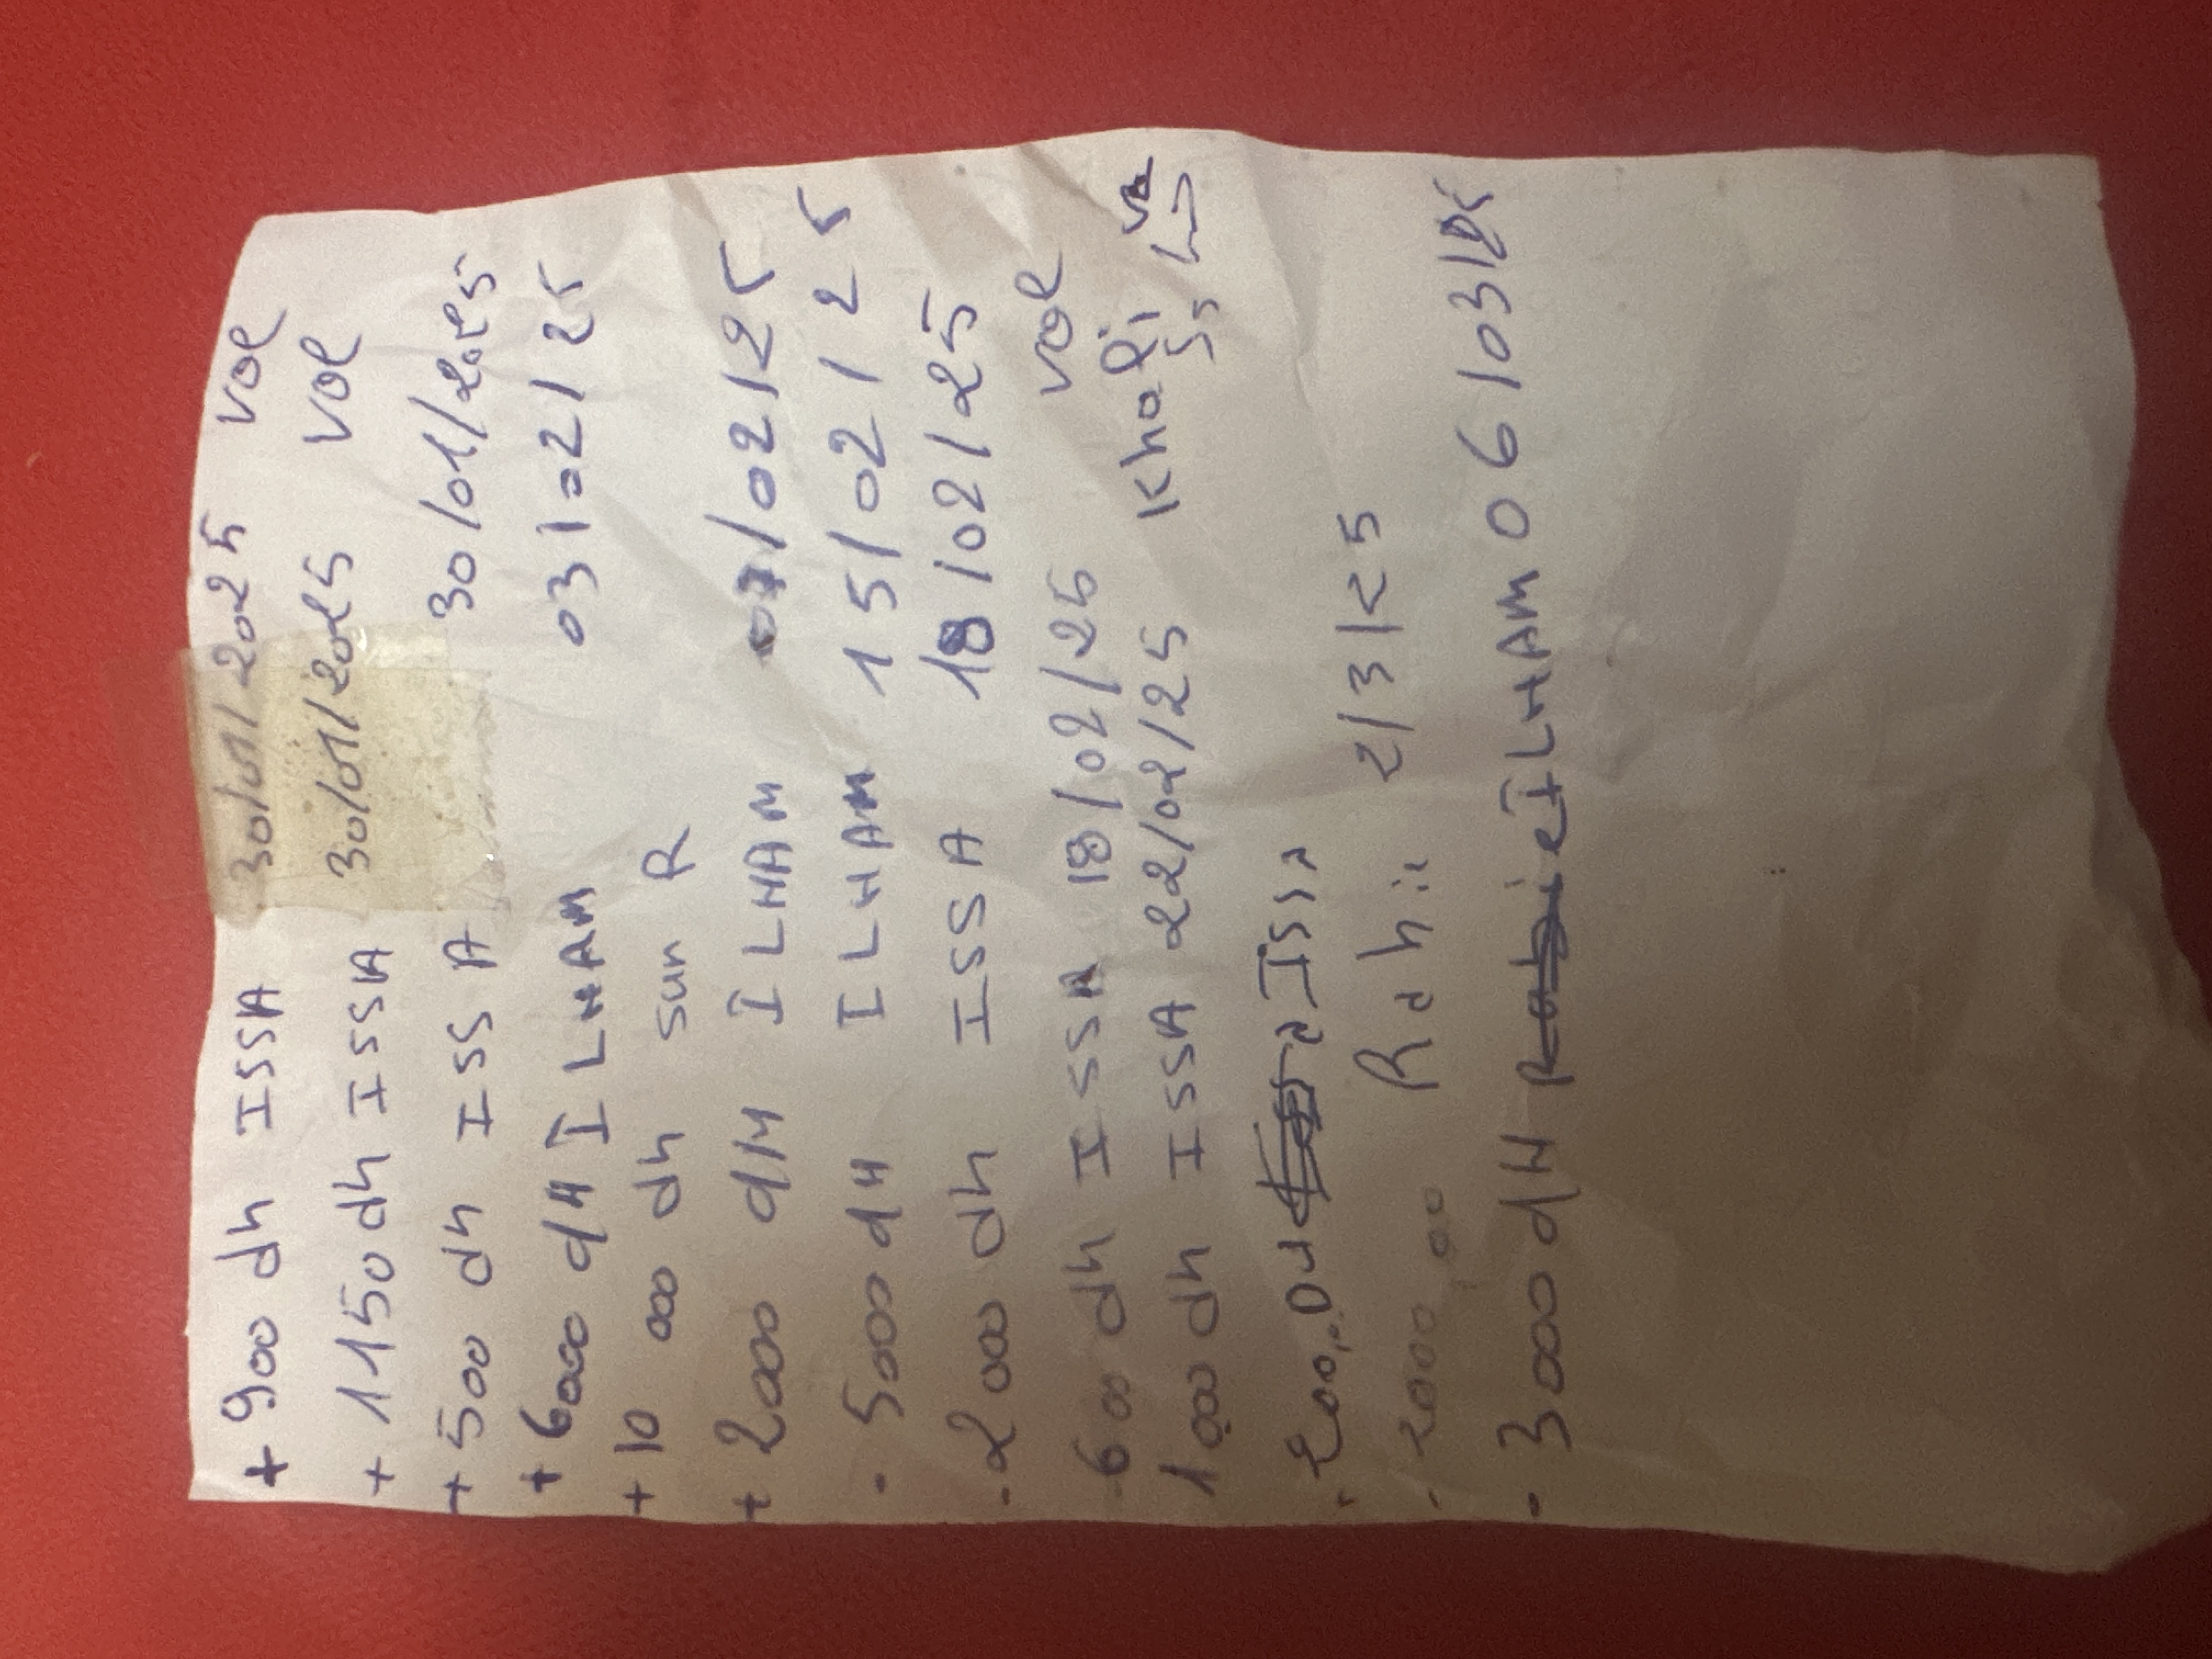 + 900 dh ISSA 30/01/2025 vol
+ 1150 dh ISSA 30/01/2025 vol
+ 500 dh ISSA 30/01/2025
+ 6000 dH ILHAM 03/02/25
+ 10 000 dh sun R
+ 2000 dH ILHAM 07/02/25
- 5000 dH ILHAM 15/02/25
- 2000 dh ISSA 18/02/25
- 600 dh ISSA 18/02/25 vol
1000 dh ISSA 22/02/25 Khali
Issa
- 2000,00 Rabie 2/3/25
- 3000 dH Rabie ILHAM 06/03/25